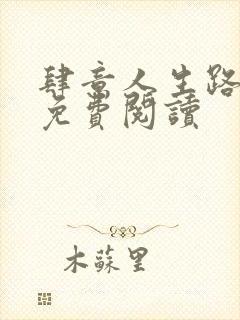 肆意人生路
免費閱讀
木蘇里